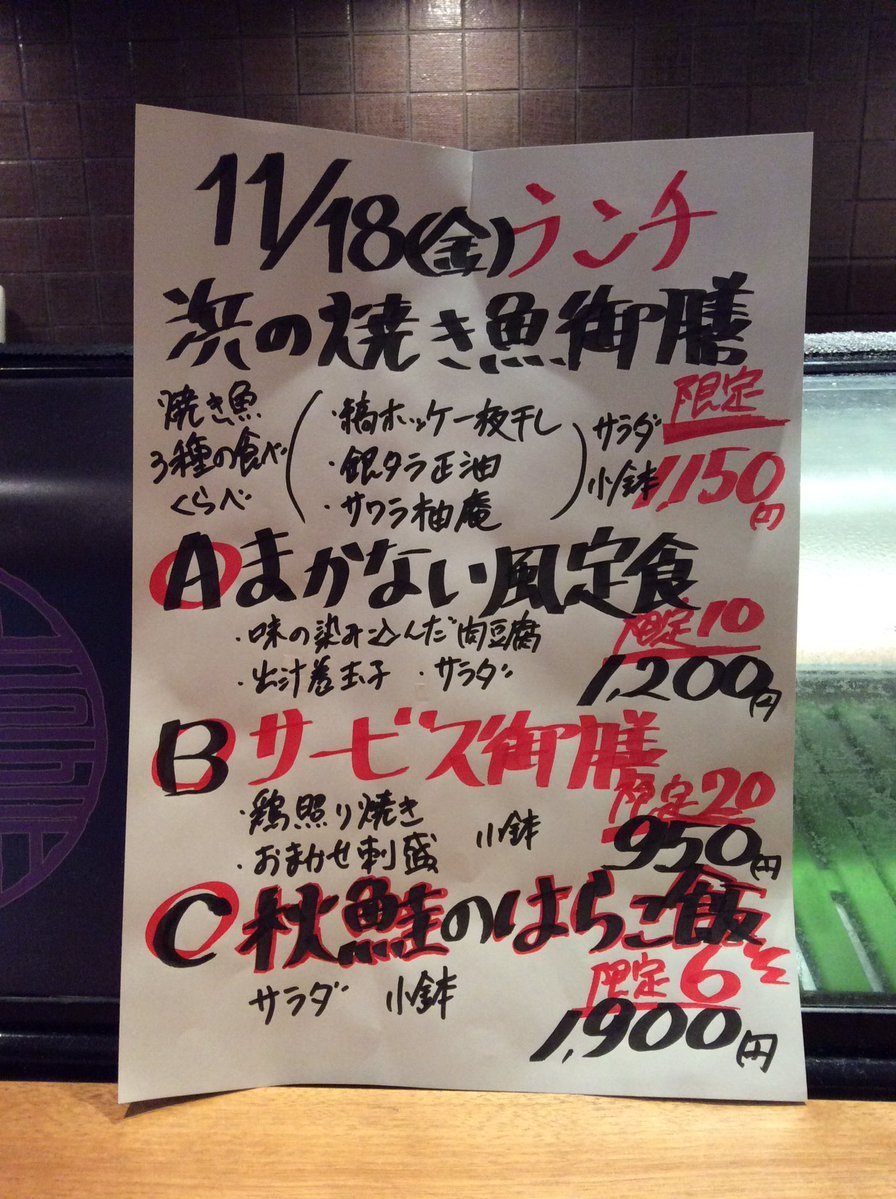 11/18(金)ランチ
浜の焼き魚御膳
限定
焼き魚
3種の食べ
くらべ
・縞ホッケ一夜干し
・銀タラ正油
・サワラ柚庵
サラダ
小鉢
1,150円
Aまかない風定食
・味の染み込んだ肉豆腐
・出汁巻玉子 ・サラダ
限定10
1,200円
Bサービス御膳
・鶏照り焼き
・おまかせ刺盛
小鉢
限定20
950円
C秋鮭のはらこ飯
サラダ 小鉢
限定6
1,900円